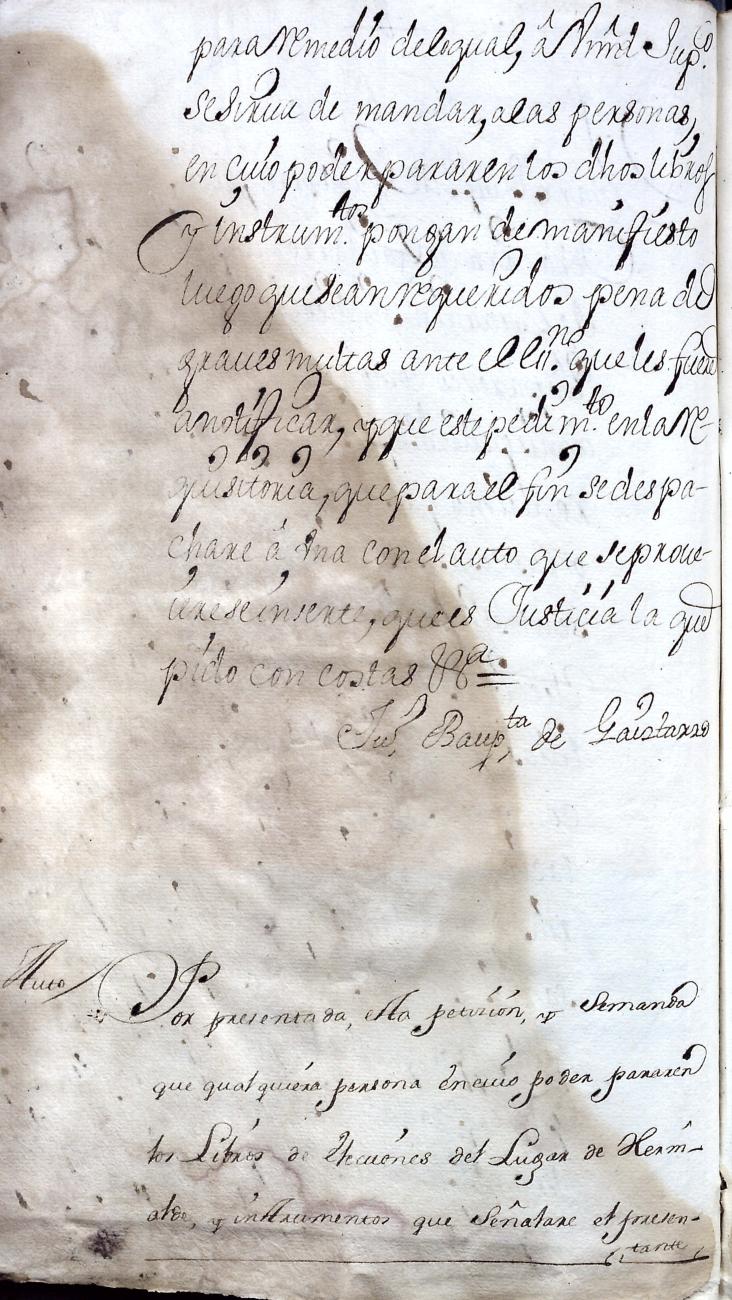 para remedio delo qual, â Vmd Supco.
se sirua de mandar, alas personas,
en cuio poder pararen los dhos libros
y instrumtos. pongan de manifiesto
luego que sean requeridos pena de
graues multas ante el que les fuere
anotificar, y que este pedimto. en la re-
quisitoria, que para el fin se despa-
chare â con el auto que se proue-
iere se inserte, que es Justicia la que
pido con costas &a =
Baupta de Gaiztarro
Auto
Por presentada, esta peticion, y Semanda
que qualquiera persona en cuio poder pararen
los Libros de del Lugar de Herm-
alde, y instrumentos que Señalare el presen-
tante